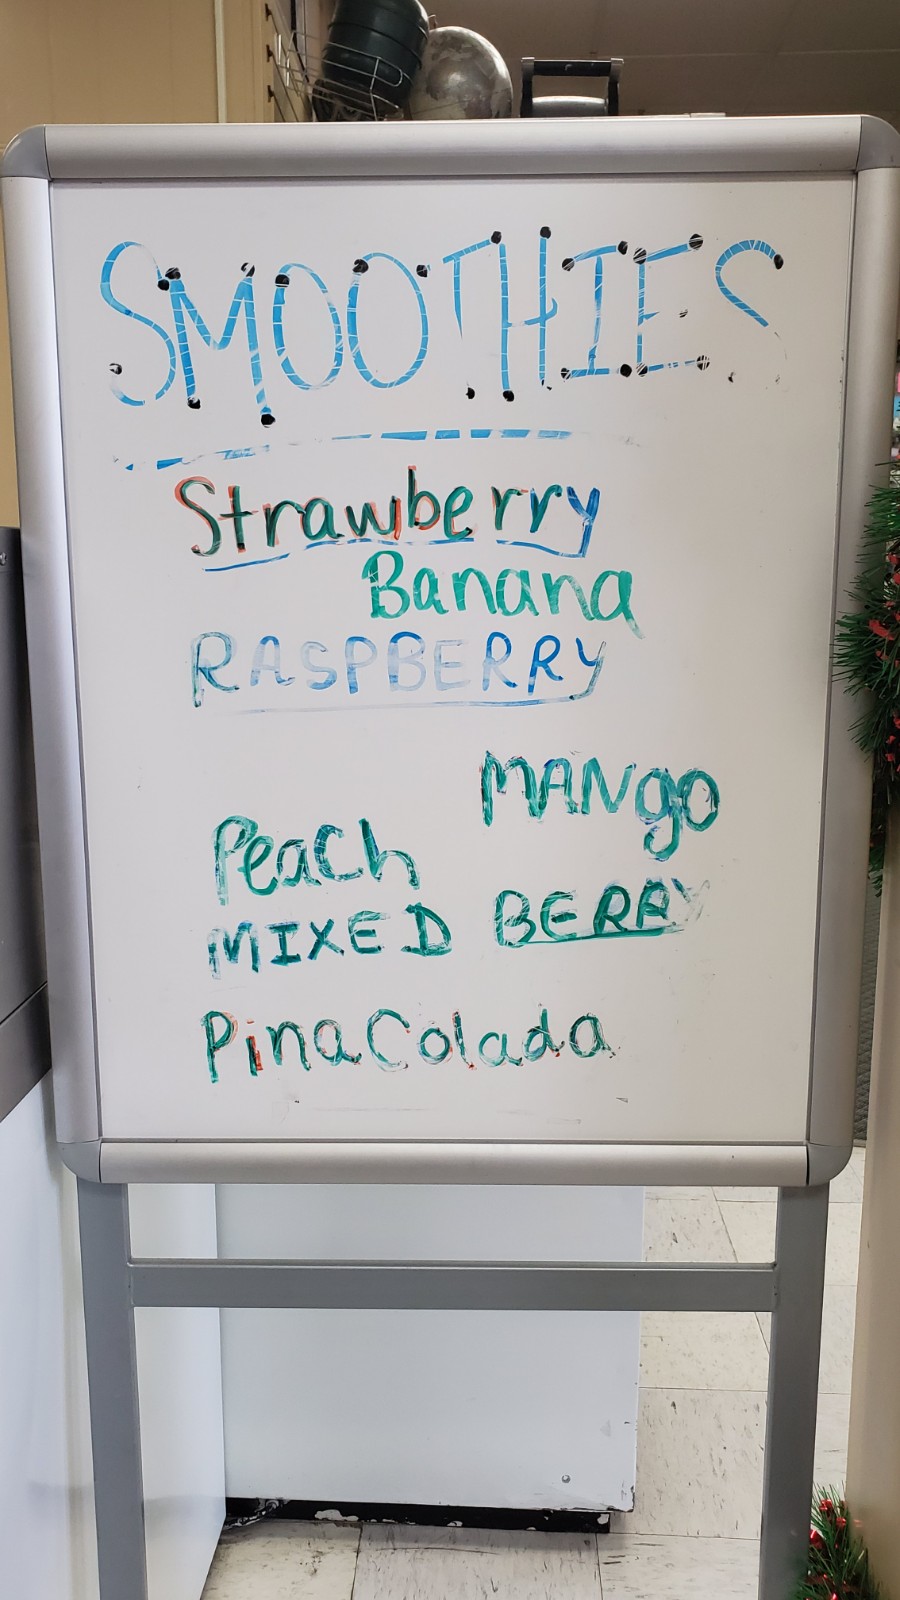 SMOOTHIES
Strawberry
Banana
RASPBERRY
MANgo
PeaCh
MIXED BERRY
Pina Colada